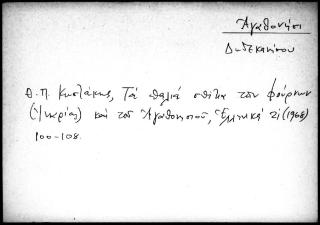 Ἀγαθονήσι
Δωδεκανήσου
Θ. Π. Κωστάκης, Τὰ παλιὰ σπίτια τῶν Φούρνων
(Ἰκαρίας) καὶ τοῦ Ἀγαθονησιοῦ, (1968)
100-108.